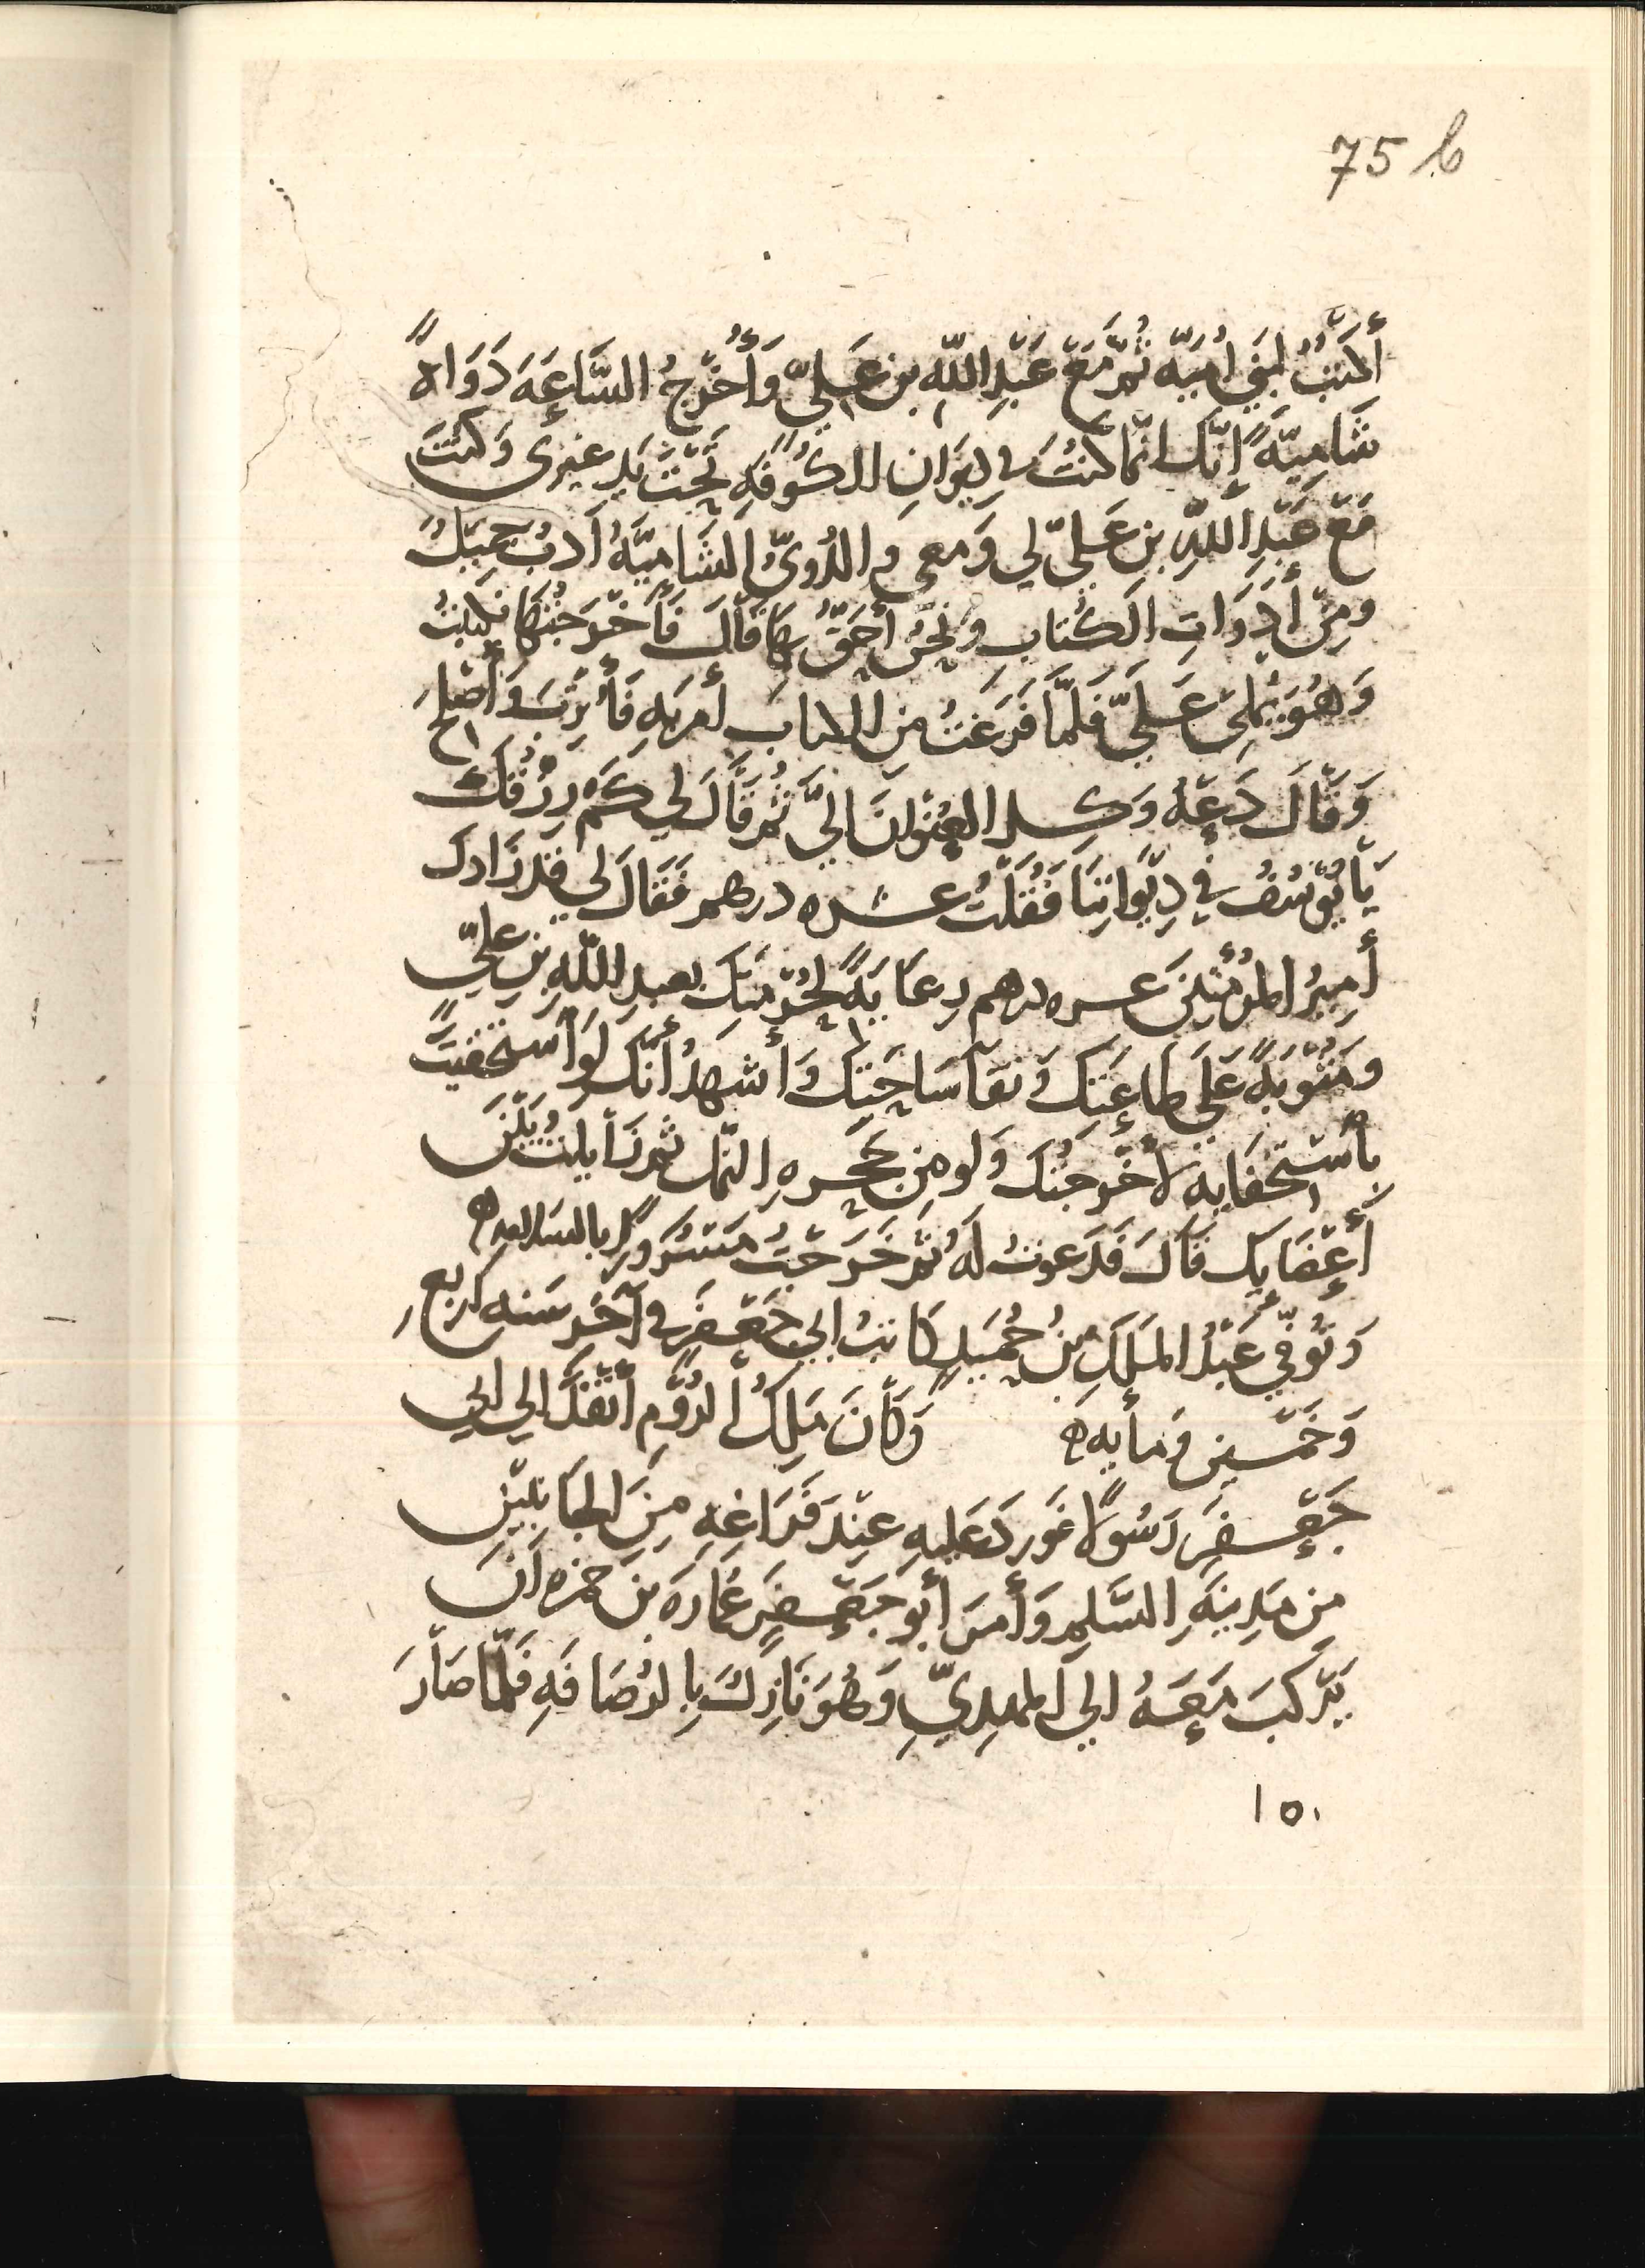 75 b
أَكتُبُ لبَنِي أُمَيّه ثُمَّ مَعَ عَبْدِ اللّهِ بن عَلِيّ وَأُخْرِجُ السَّاعَةَ دَوَاةً
شَامِيّةً إنّك انّما كنتَ في دِيوَانِ الكُوفَةِ تَحْتَ يَدِ غيري وَكنتَ
مَعَ عَبْدِ اللّهِ بن عَلِيّ لي وَمعي والدُّوِيُّ الشَامِيّةُ أدبُ جميلٌ
ومِنْ أَدَوَاتِ الكُتابِ ونَحْنُ أَحَقُّ بِهَا قالَ فَأَخْرَجْتُهَا فكتبتُ
وَهُوَ يُمْلِي عَلَيَّ فَلَمَّا فَرَغتُ مِن الكتاب أمر به فَأُتْرِبَ وَأُصْلِحَ
وَقَالَ دَعْهُ وَكِلِ العُنْوانَ اليَّ ثُمّ قَالَ لِي كَمْ رِزْقُكَ
يَا يُوسُفُ فِي دِيوَانِنَا فَقُلْتُ عشره دراهم فَقَالَ لي قد زَادك
أَمِيرُ المُؤْمنينَ عشره دراهم رِعَايَةً لِحُرْمَتِكَ بعبدِ اللّهِ بن عليّ
ومَثُوبَةً عَلَى طاعَتِك وَنَقآ سَاحَتِك وَأشهدُ أَنَّك لَوْ اسْتَخْفَيْتَ
باسْتِخْفَايِه لأخْرَجْتُكَ وَلو مِن جُحْرِه النّمل ثم زَايلتُ بَيْنَ
أَعْضَايِك قَالَ فَدَعوتُ لَهُ ثُمَّ خَرَجْتُ مَسْرُورًا بالسّلامه ه
وَتُوُفِّيَ عَبْدُ المَلِكِ بنُ حُمَيْدٍ كَاتِبُ ابي جَعْفَر في آخَرِ سَنه اربع
وَخَمْسين ومأيه ه وَكَانَ مَلِكُ الرُّومِ أنْفَذَ الي ابي
جَعْفَر رَسُولاً فَورد عَليهِ عِنْدَ فَرَاغِهِ مِنَ الجَانِبَيْنِ
مِن مَدِينَةِ السَّلمِ وَأَمَرَ أبُو جَعْفَر عُمَارَةَ بنَ حمزه أنْ
يَرْكَبَ مَعَهُ الي المهدِيِّ وَهُوَ نَازِلٌ بِالرُّصَافَهِ فَلَمَّا صَارَ
١٥٠